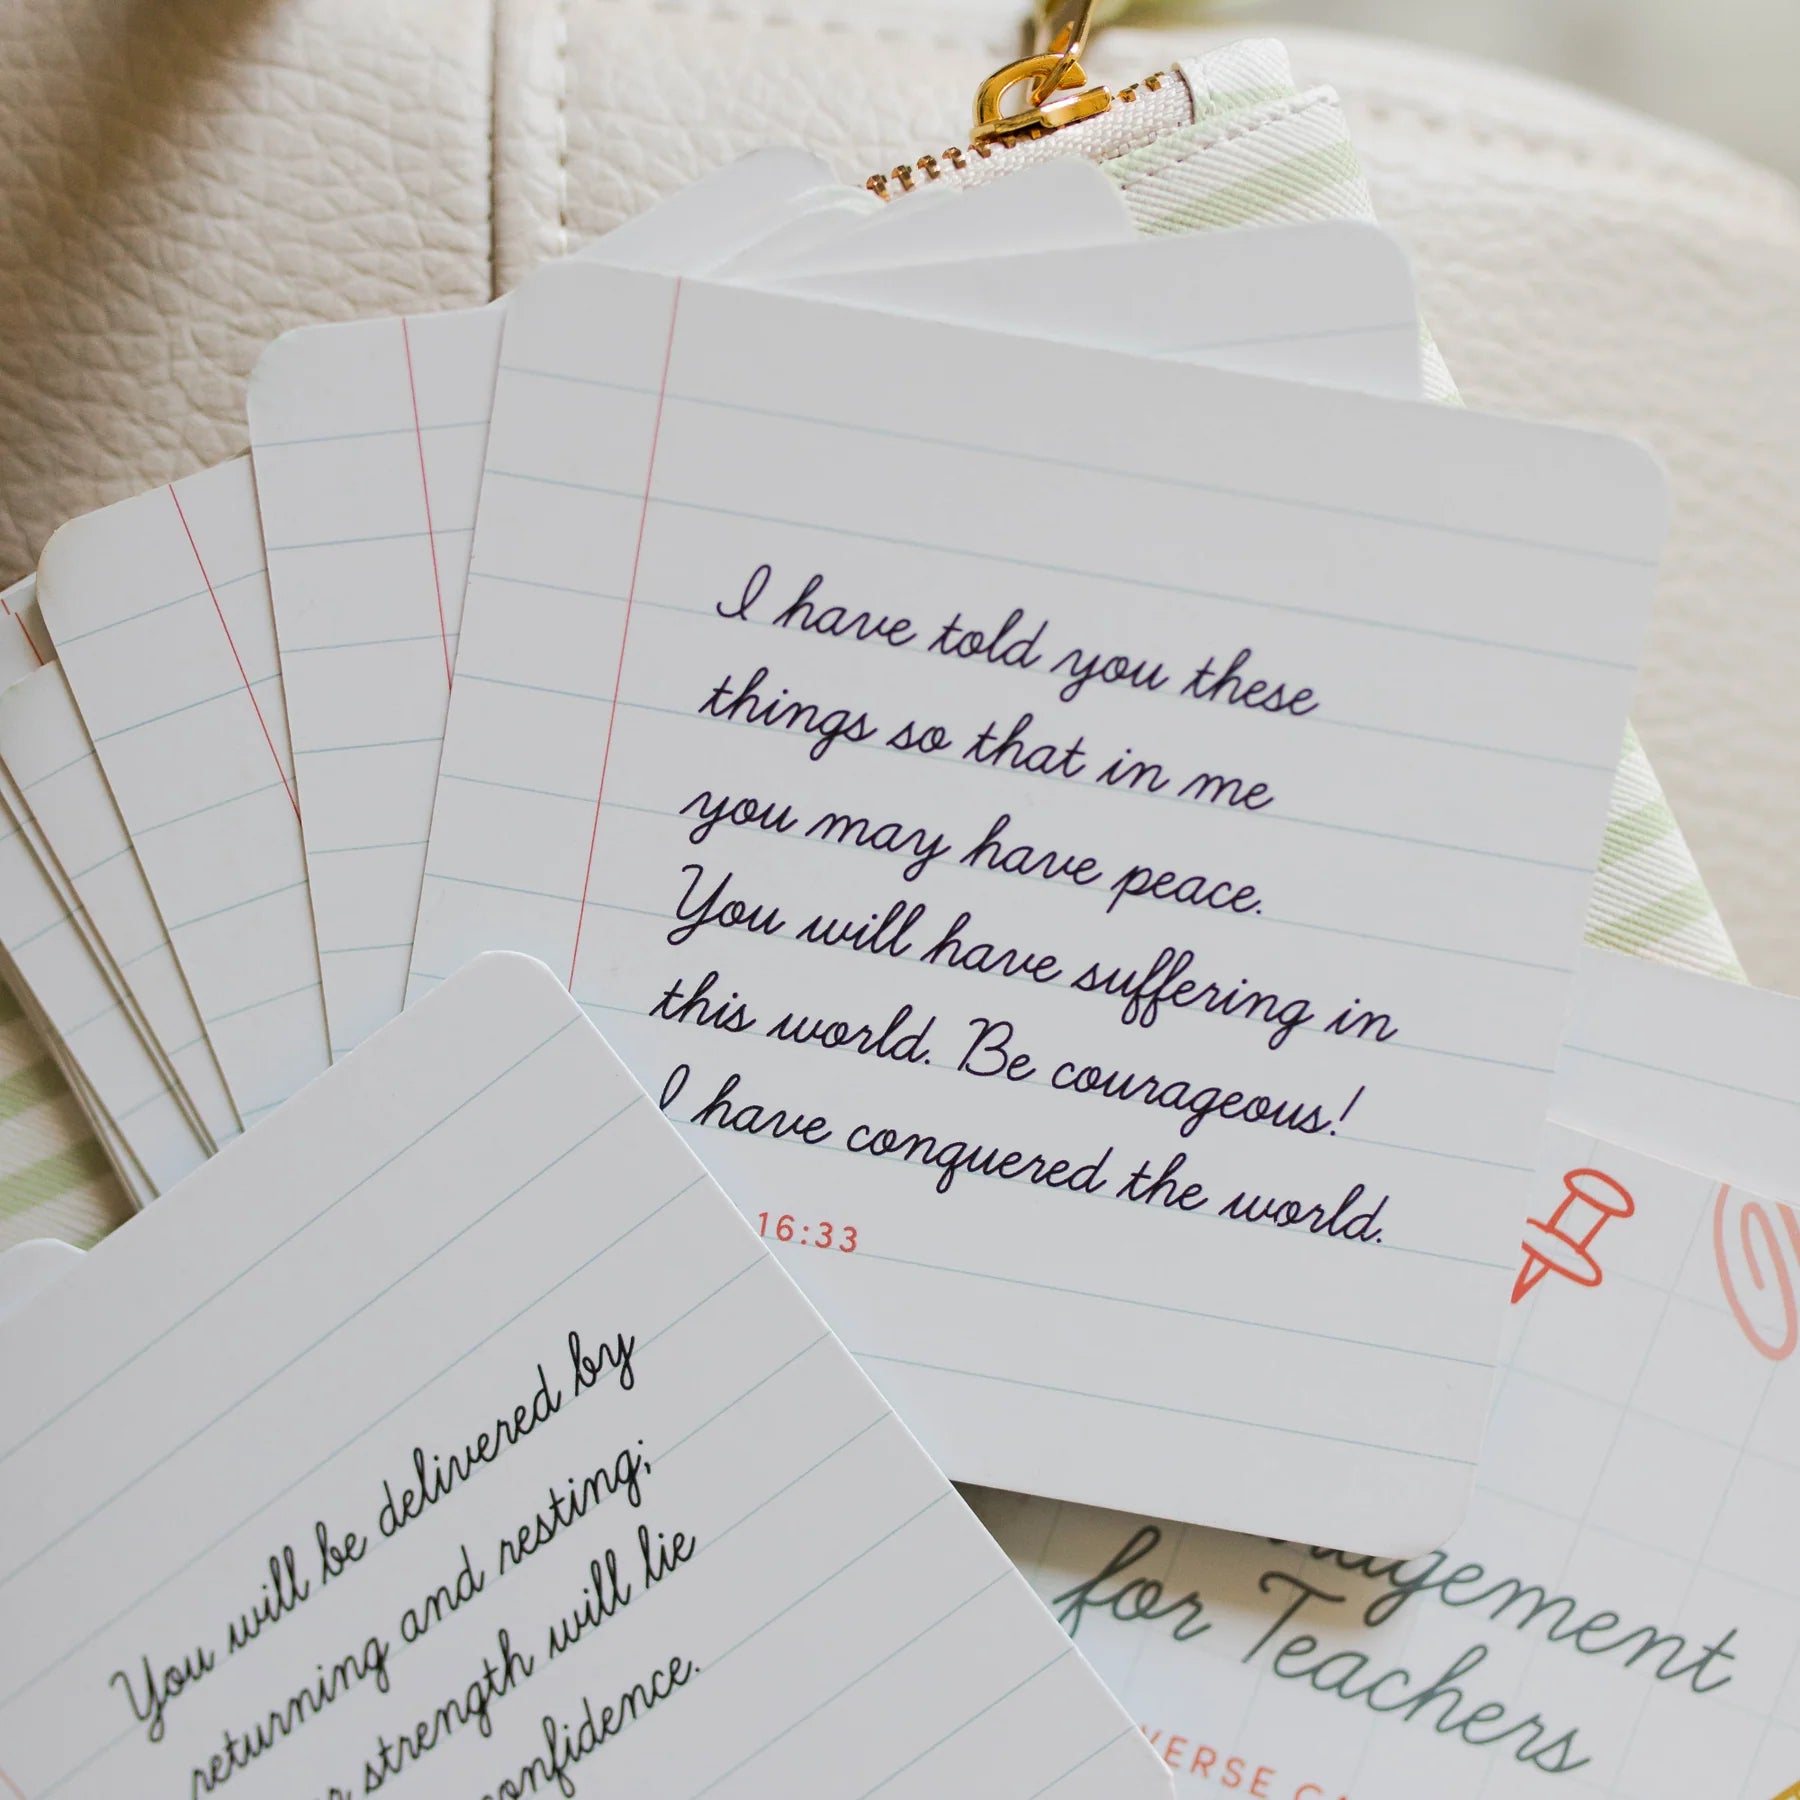 I have told you these
things so that in me
you may have peace.
You will have suffering in
this world. Be courageous!
I have conquered the world.
16:33
You will be delivered by
returning and resting;
strength will lie
confidence.
for Teachers
VERSE